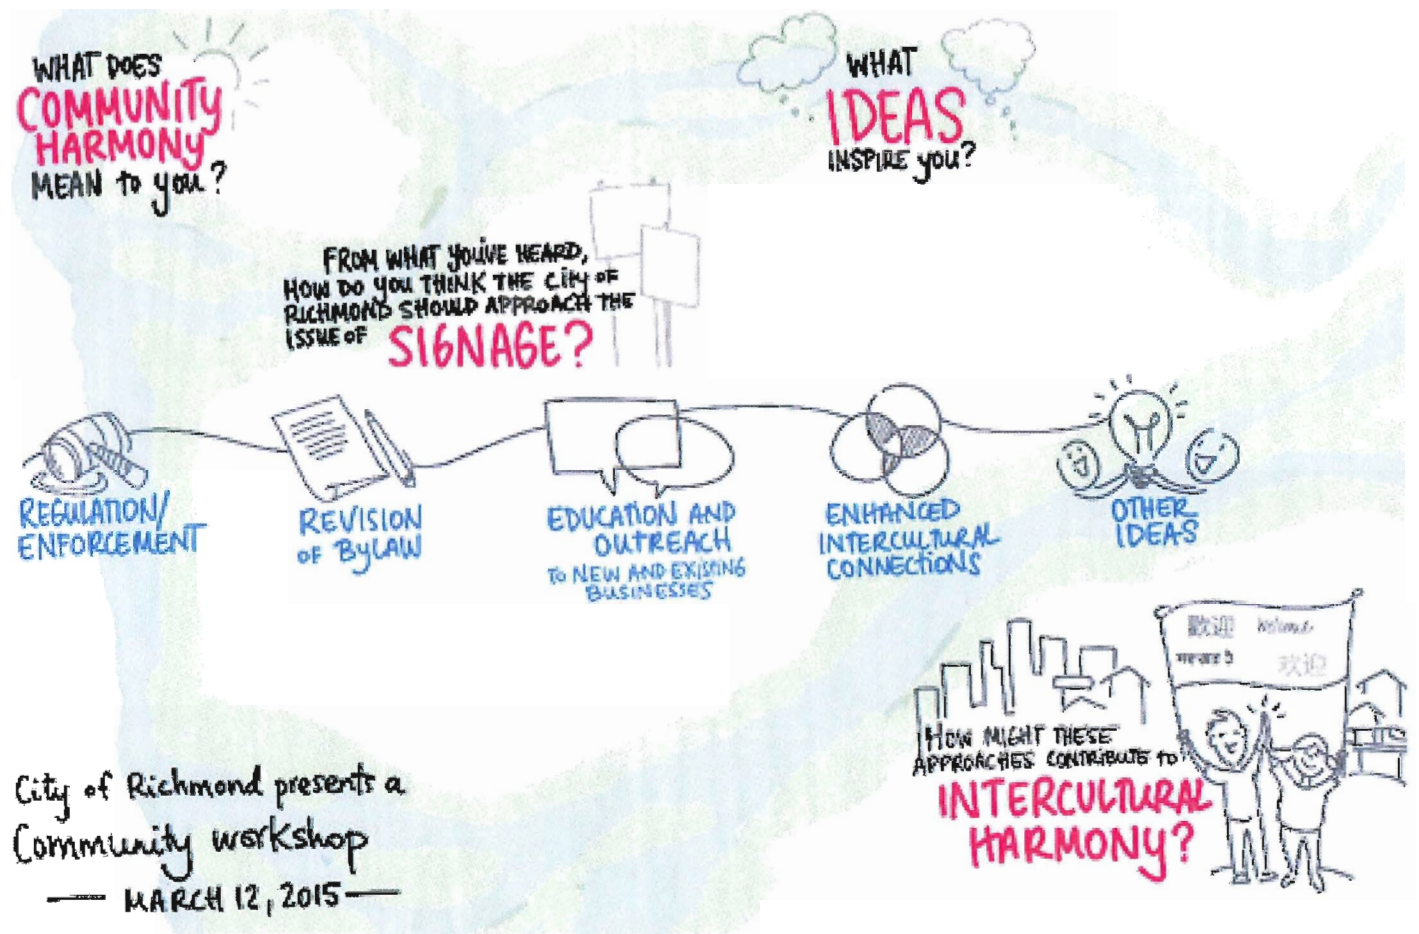 WHAT DOES
COMMUNITY
HARMONY
MEAN to you?
WHAT
IDEAS
INSPIRE you?
FROM WHAT YOU'VE HEARD,
HOW DO YOU THINK THE City OF
RICHMOND SHOULD APPROACH THE
ISSUE OF SIGNAGE?
REGULATION/
ENFORCEMENT
REVISION
OF BYLAW
EDUCATION AND
OUTREACH
to NEW AND EXISTING
BUSINESSES
ENHANCED
INTERCULTURAL
CONNECTIONS
OTHER
IDEAS
歡迎 Welcome
欢迎
HOW MIGHT THESE
APPROACHES CONTRIBUTE to
INTERCULTURAL
HARMONY?
City of Richmond presents a
Community workshop
— MARCH 12, 2015 —